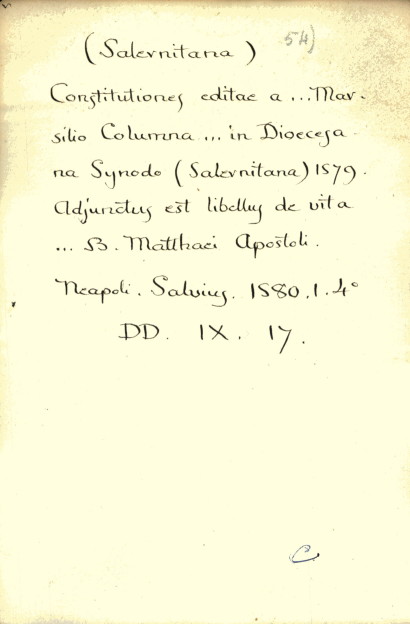 (Salernitana) 54)
Constitutiones editae a ... Mar-
silio Columna ... in Dioecesa-
na Synodo (Salernitana) 1579.
Adjunctus est libellus de vita
... B. Matthaei Apostoli.
Neapoli. Salvius. 1580. 1. 4°
DD. IX. 17.
C